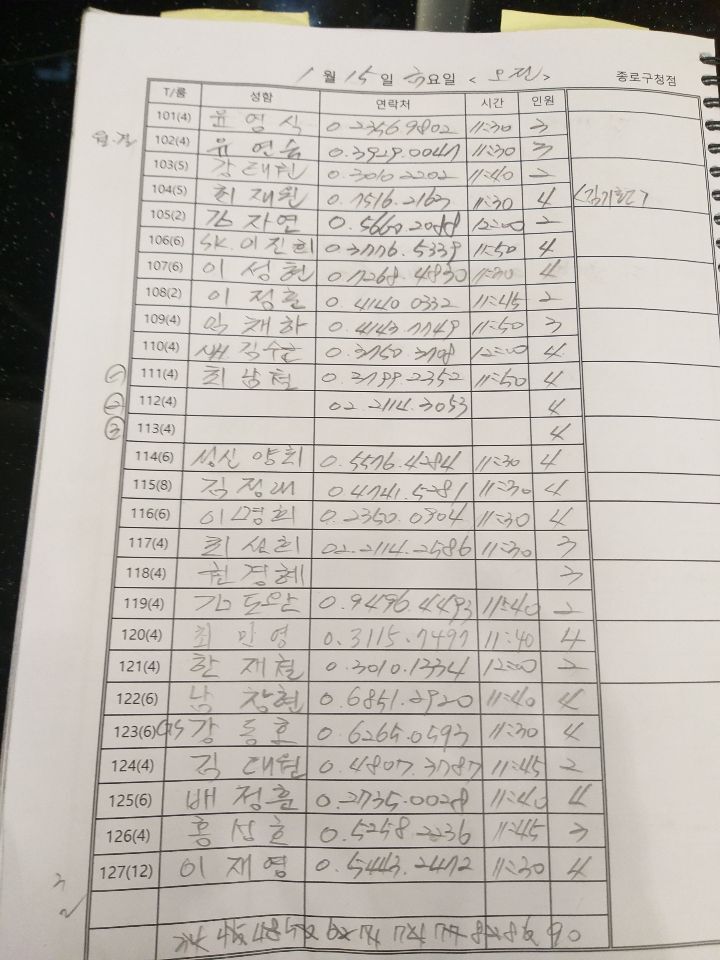 1월 15일 금요일 < 오전 > 종로구청점
T/룸 성함 연락처 시간 인원
101(4) 윤영식 0.2356.9802 11:30 3
102(4) 유연숙 0.3929.0047 11:30 3
103(5) 강태원 0.3010.2202 11:40 2
104(5) 최재원 0.7516.2163 11:30 4
105(2) 김자연 0.5660.2088 12:00 2
106(6) SK.이진희 0.3776.5339 11:50 4
107(6) 이성현 0.7268.4830 11:30 4
108(2) 이정훈 0.4140.0332 11:45 2
109(4) 채하 0.4143.7749 11:50 3
110(4) 0.3750.3708 12:00 4
① 111(4) 최남철 0.3799.2352 11:50 4
② 112(4) 02.2114.3053 4
③ 113(4) 4
114(6) 성신양회 0.5576.4284 11:30 4
115(8) 김정래 0.4741.5281 11:30 4
116(6) 이명희 0.2350.0904 11:30 4
117(4) 최선희 02.2114.2586 11:30 3
118(4) 원경혜 3
119(4) 0.9496.4493 11:40 2
120(4) 최만영 0.3115.7497 11:40 4
121(4) 한재철 0.3010.1334 12:00 2
122(6) 남창현 0.6851.2920 11:40 4
123(6) GS강동호 0.6265.0593 11:30 4
124(4) 김태원 0.4807.3787 11:45 2
125(6) 배정훈 0.2735.0028 11:40 4
126(4) 홍성호 0.5258.2236 11:45 3
127(12) 이재영 0.5443.2472 11:30 4
90